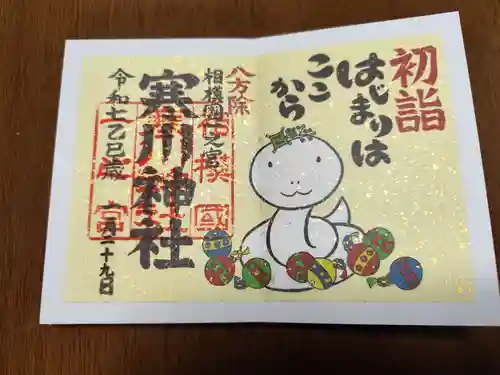 初詣
はじまりは
ここ
から
八方除
相模國一之宮
寒川神社
令和七乙巳歳
一月二十九日
相模國
一之宮